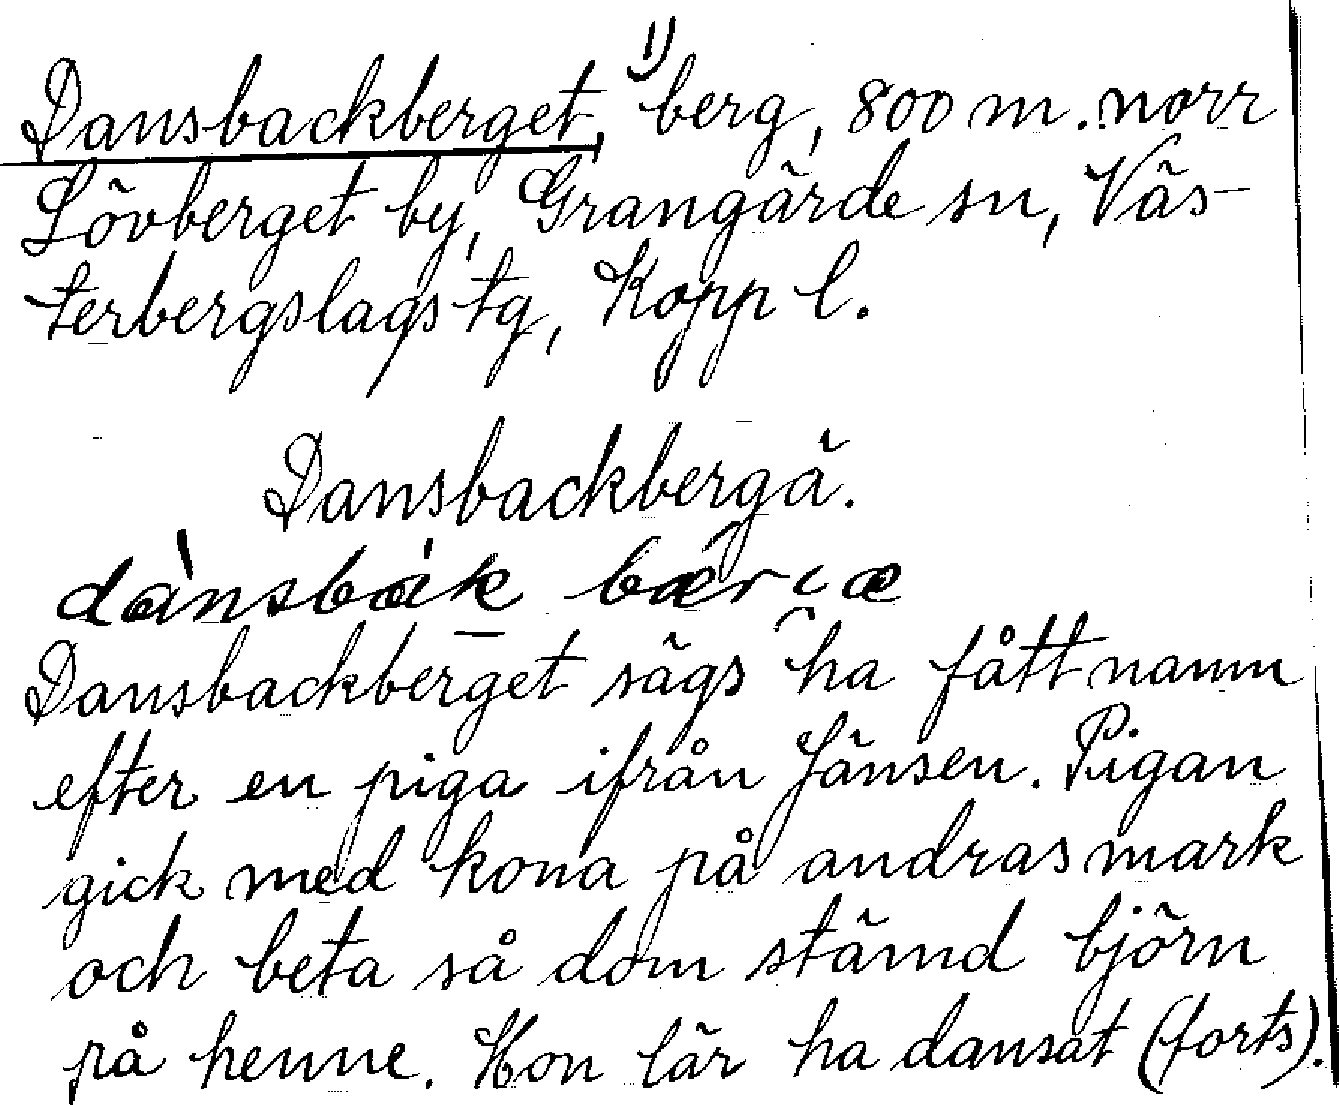 Dansbackberget, 1) berg, 800 m. norr
Lövberget by, Grangärde sn, Väs-
terbergslags tg, Kopp l.
Dansbackbergä.
dànsbák bærɩæ
Dansbackberget sägs ha fått namn
efter en piga ifrån Jänsen. Pigan
gick med kona på andras mark
och beta så dom stämd björn
på henne. Hon lär ha dansat (forts).